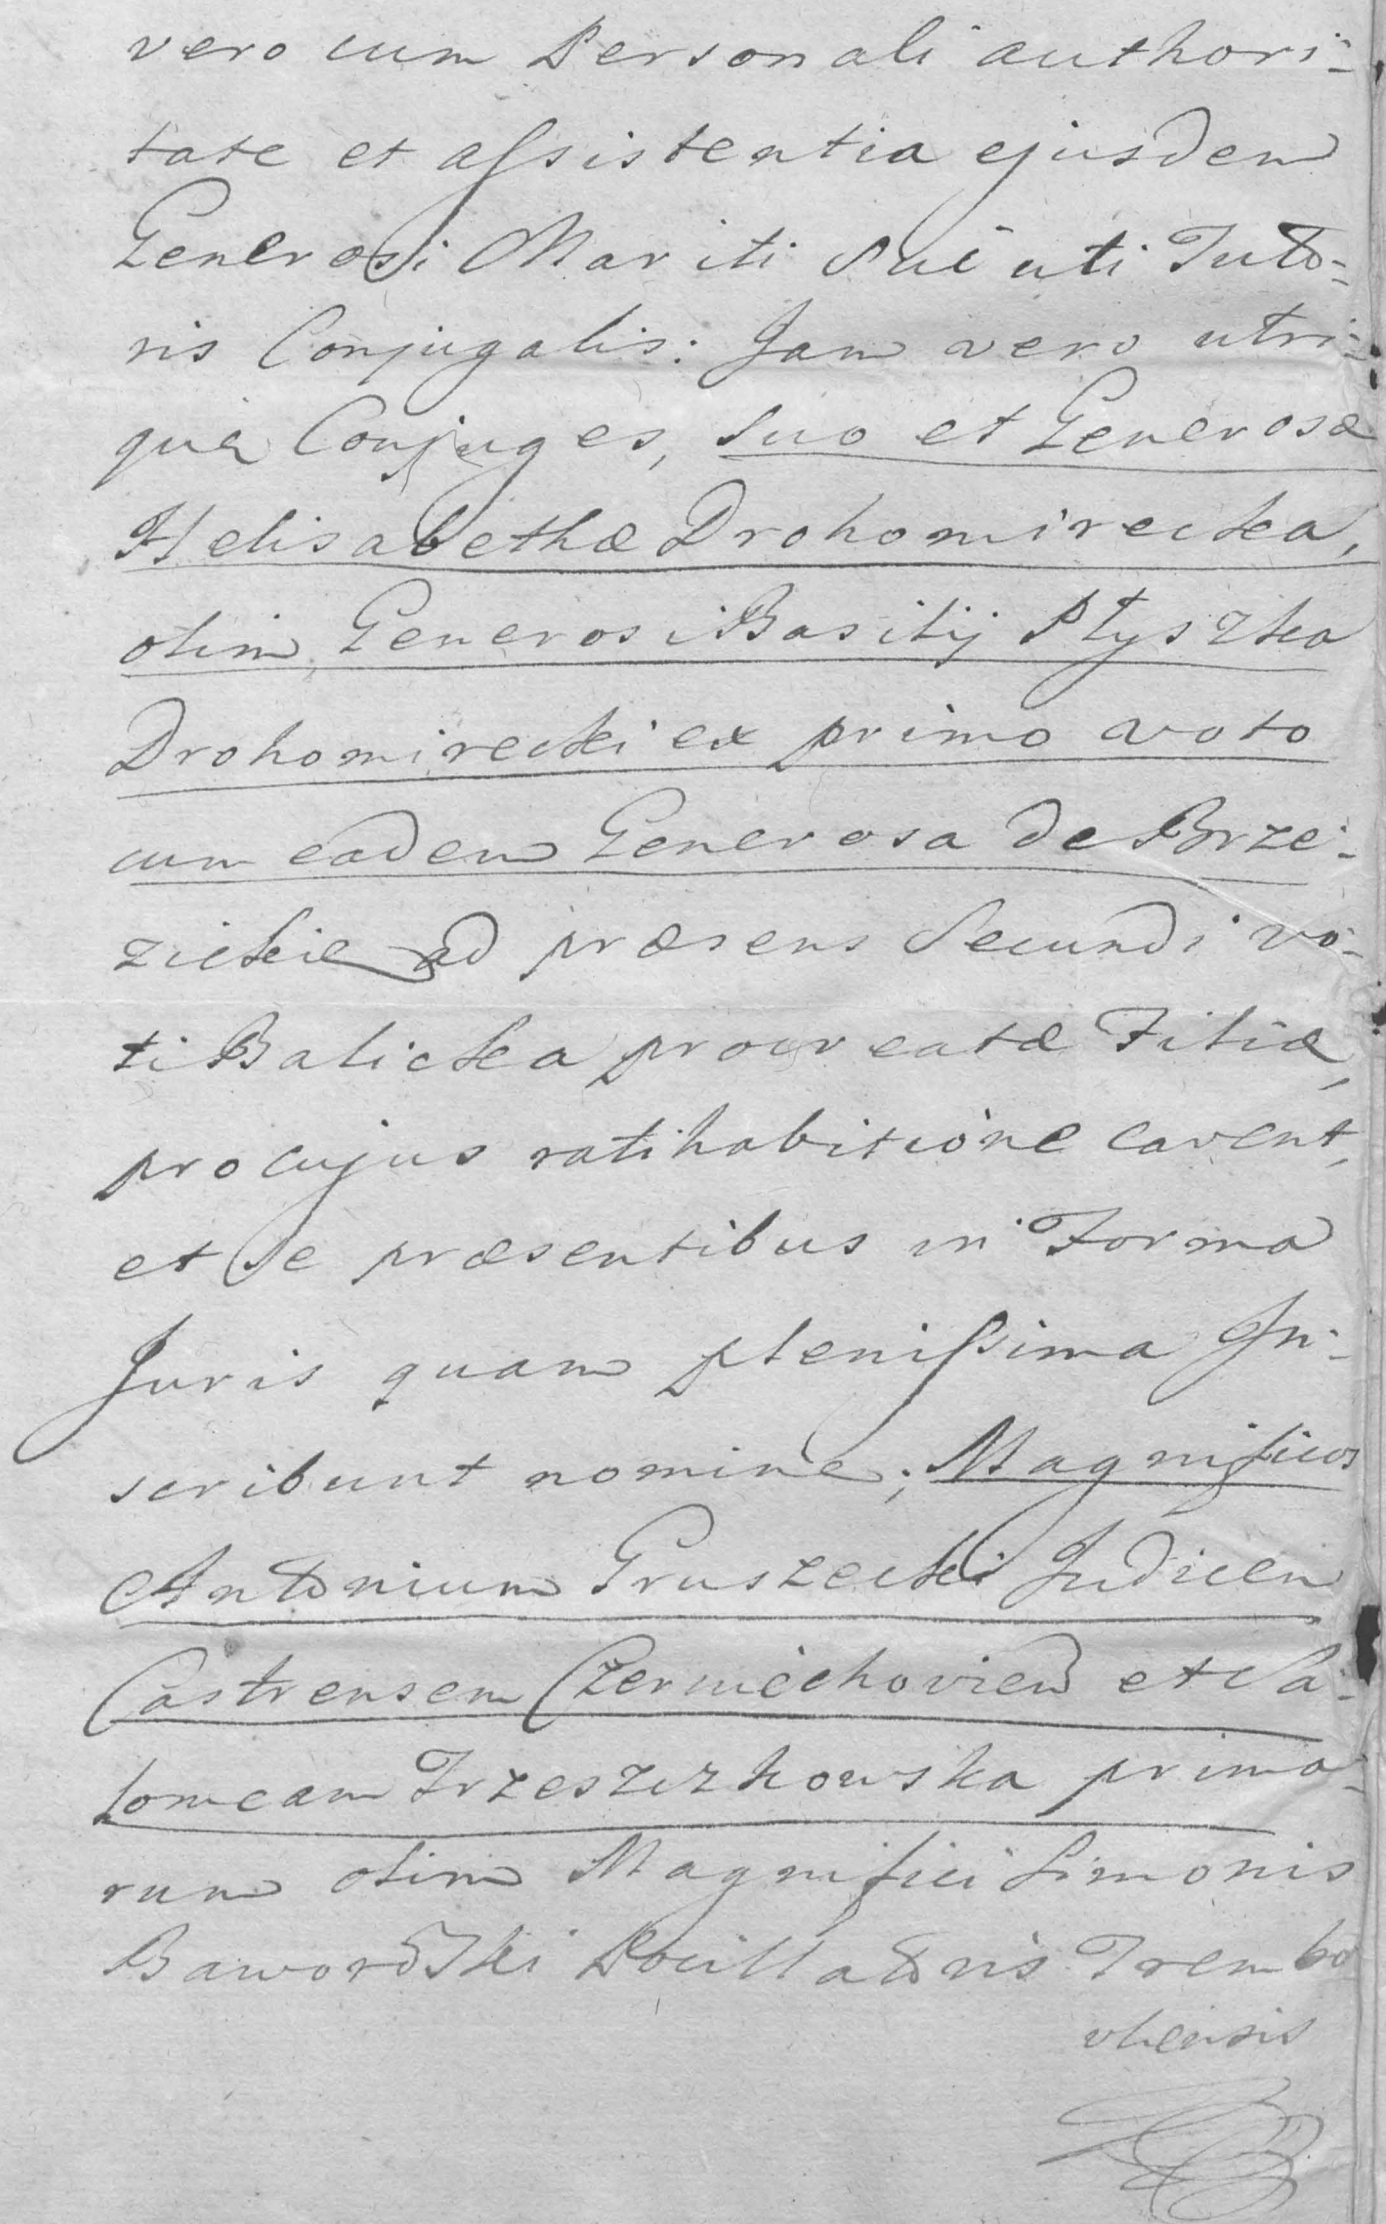 vero cum Personali authori-
tate et assistentia ejusdem
Generosi Mariti Sui uti Tuto-
ris Conjugalis: Jam vero utri-
que Conjuges, suo et Generosæ
Helisabethæ Drohomirecka,
olim Generosi Basilij Płyszka
Drohomirecki ex primo voto
cum eadem Generosa de Brze-
zickie ad præsens Secundi vo-
ti Balicka procreatæ Filiæ,
pro cujus ratihabitione cavent,
et se præsentibus in Forma
Juris quam plenissima In-
scribunt nomine; Magnificos
Antonium Gruszecki Judicem
Castrensem Czerniechovien et Sa-
lomeam Trzeszczkowska prima-
rum olim Magnifici Simonis
Baworowski Pocillatoris Trembo
vliensis